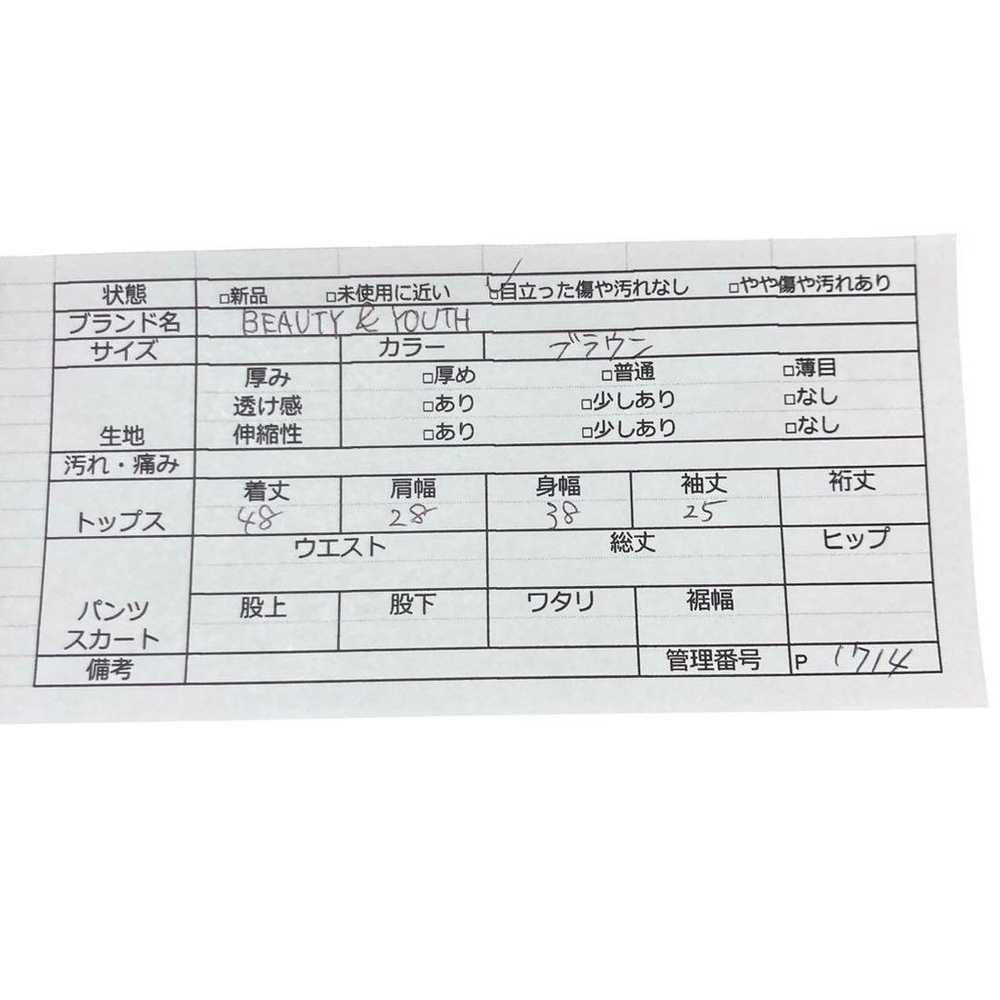 状態 □新品 □未使用に近い ☑目立った傷や汚れなし □やや傷や汚れあり
ブランド名 BEAUTY & YOUTH
サイズ カラー ブラウン
厚み □厚め □普通 □薄目
透け感 □あり □少しあり □なし
生地 伸縮性 □あり □少しあり □なし
汚れ・痛み
着丈 肩幅 身幅 袖丈 裄丈
トップス 48 28 38 25
ウエスト 総丈 ヒップ
パンツ 股上 股下 ワタリ 裾幅
スカート
備考 管理番号 P 1714